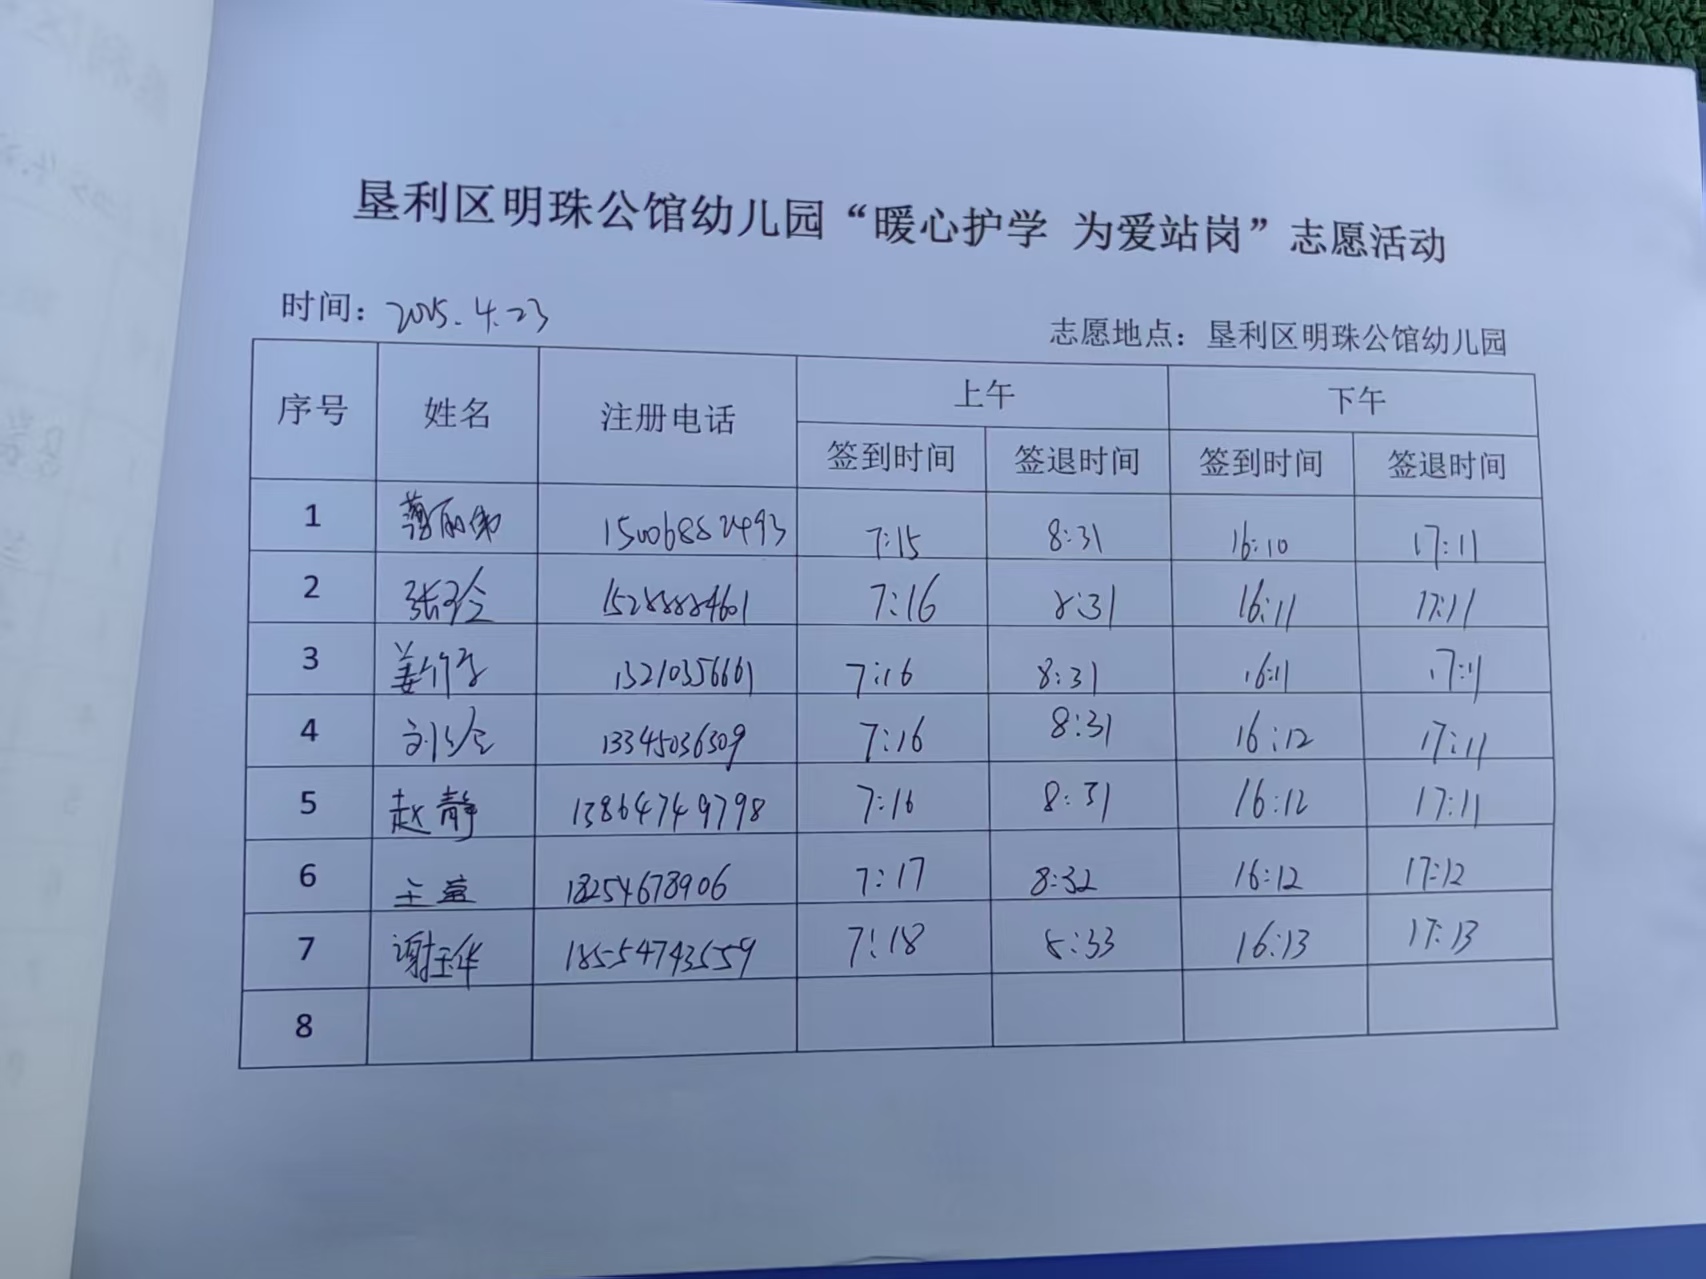 垦利区明珠公馆幼儿园“暖心护学 为爱站岗”志愿活动
时间：2025.4.23
志愿地点：垦利区明珠公馆幼儿园
序号 姓名 注册电话 上午 下午
签到时间 签退时间 签到时间 签退时间
1 15006882493 7:15 8:31 16:10 17:11
2 张 15288884601 7:16 8:31 16:11 17:11
3 姜 13210356661 7:16 8:31 16:11 17:11
4 刘 13345036309 7:16 8:31 16:12 17:11
5 赵静 13864749798 7:16 8:31 16:12 17:11
6 王 18254678906 7:17 8:32 16:12 17:12
7 谢玉华 18554743559 7:18 8:33 16:13 17:13
8